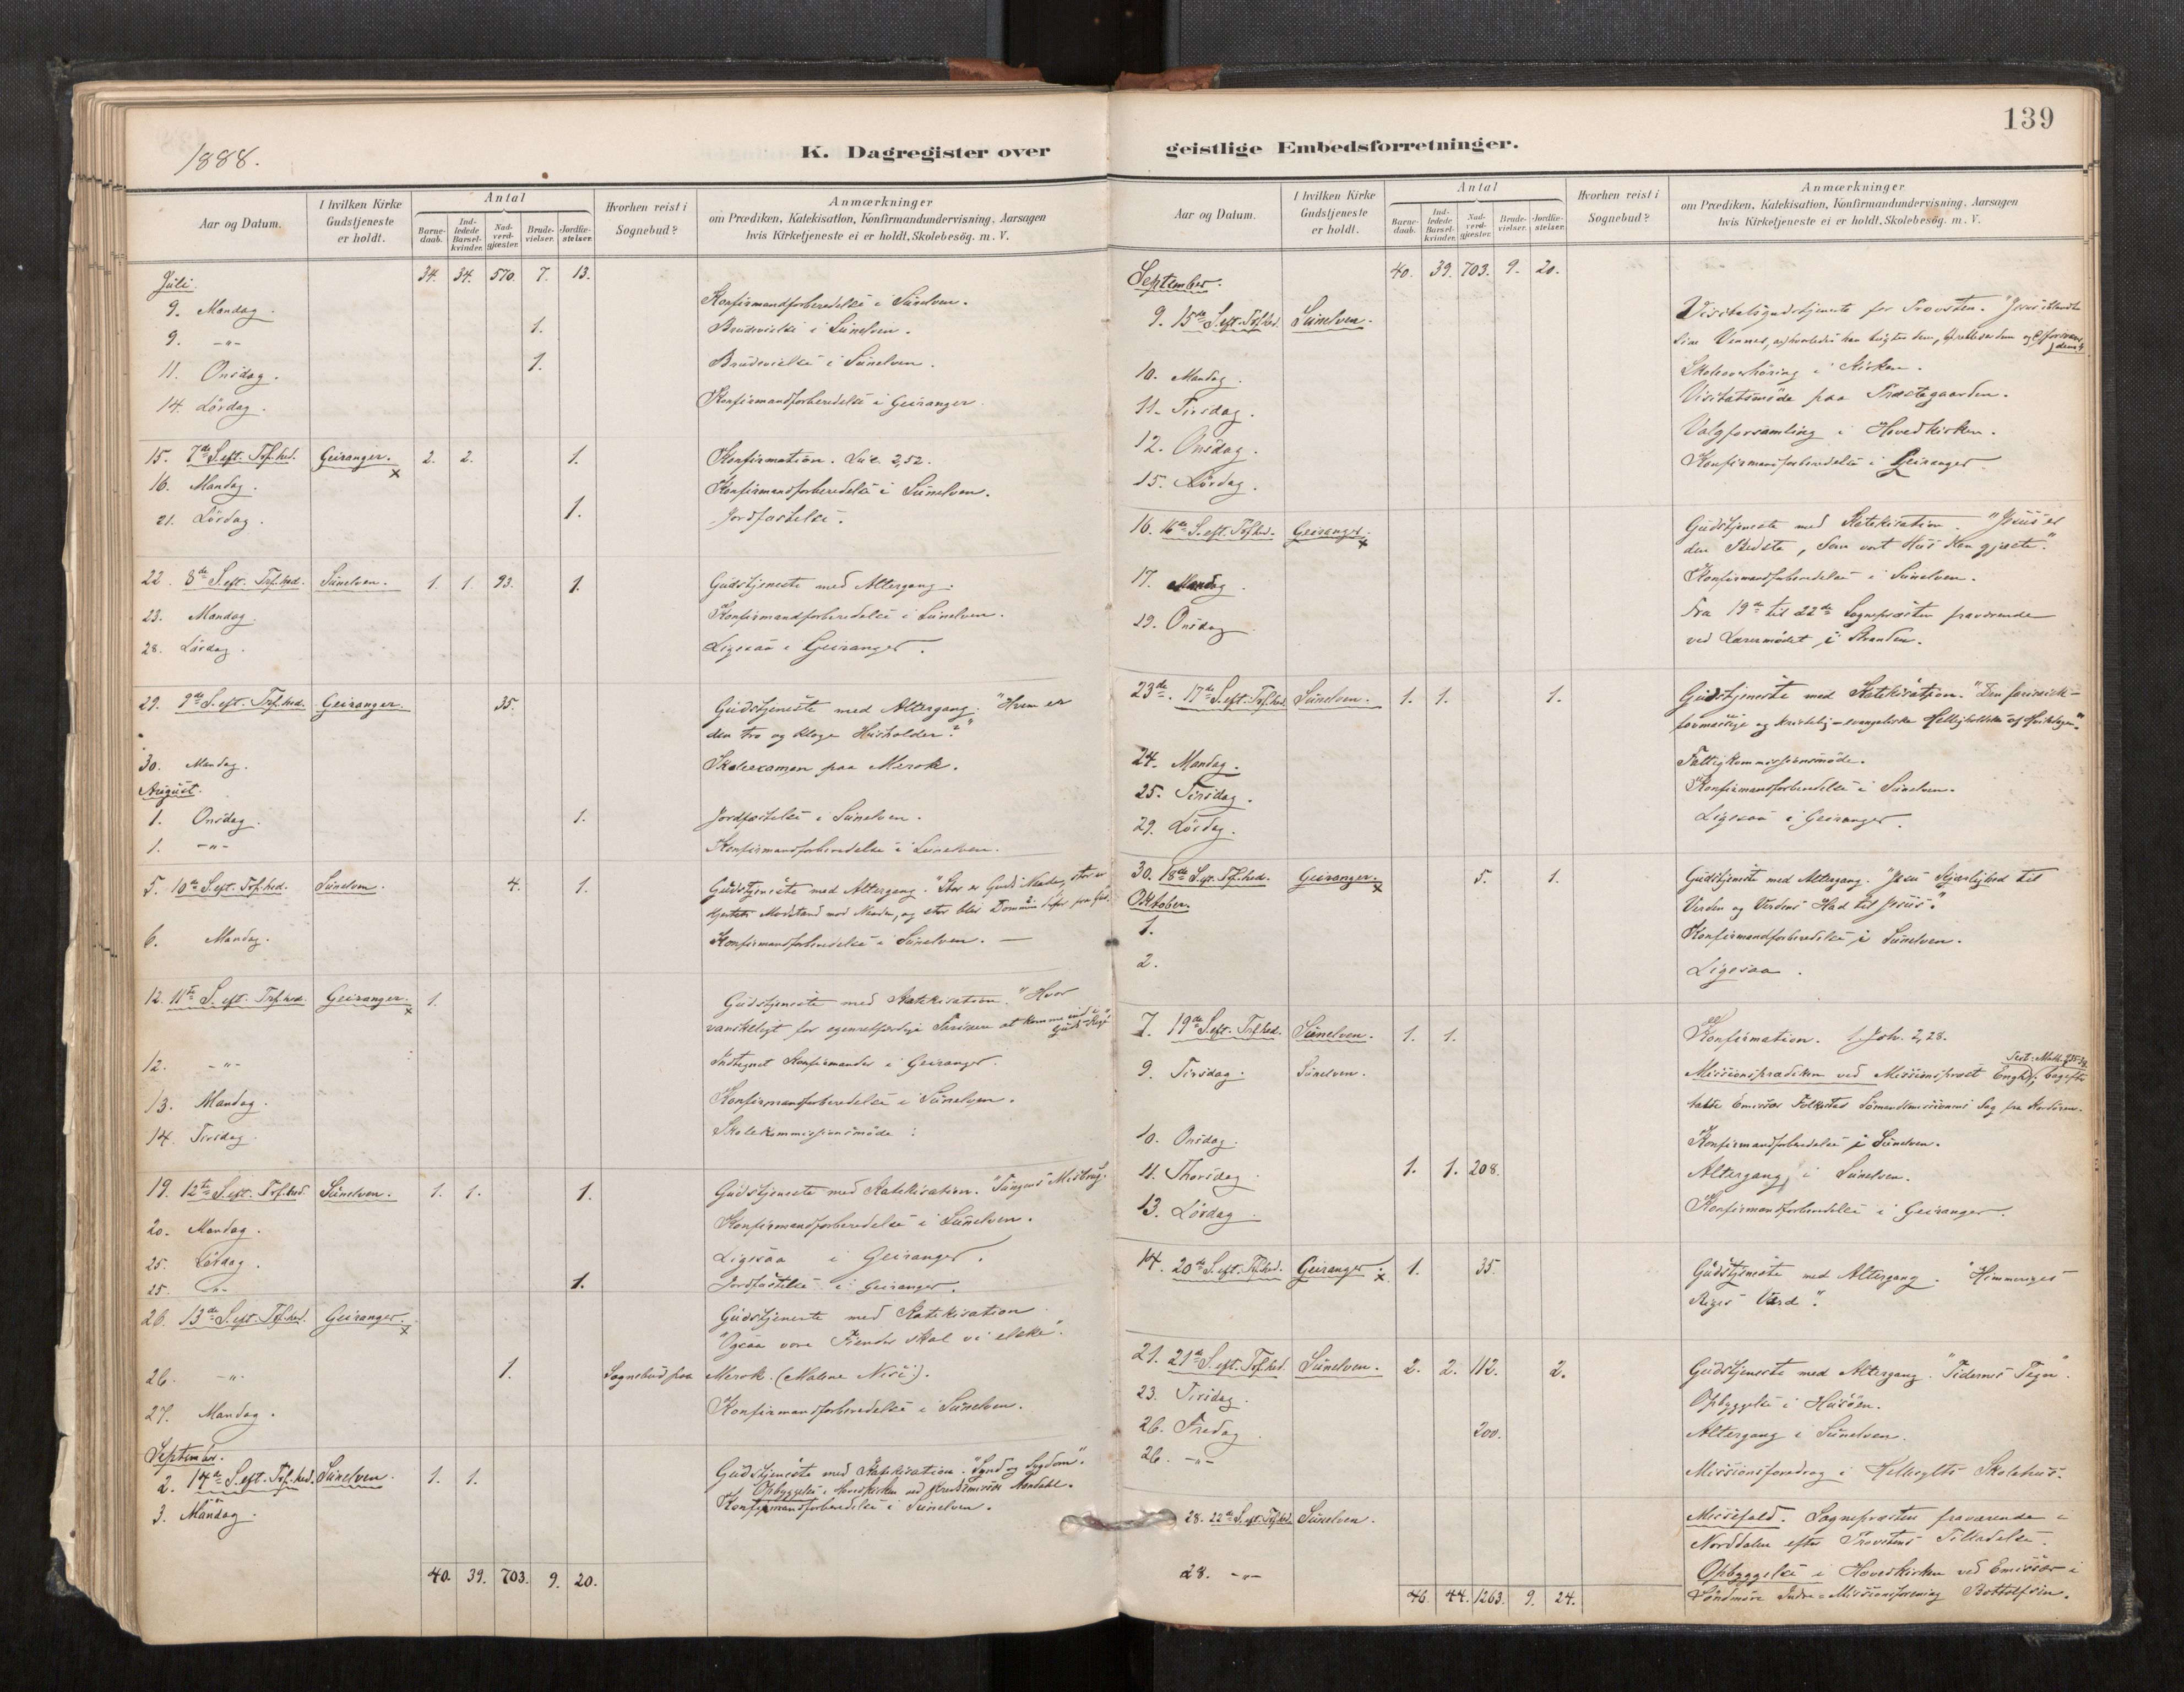 1888.
K. Dagregister over
Aar og Datum.
I hvilken Kirke Gudstjeneste er holdt.
Antal
Barne-daab.
Ind-ledede Barsel-kvinder.
Nad-verd-gjæster.
Brude-vielser.
Jordfæ-stelser.
Hvorhen reist i Sognebud?
Anmærkninger
om Prædiken, Katekisation, Konfirmandundervisning, Aarsagen
hvis Kirketjeneste ei er holdt, Skolebesög. m. V.
Juli. 34. 34. 570. 7. 13.
9. Mandag. Konfirmandforberedelse i Sunelven.
9. -"- 1. Brudevielse i Sunelven.
11. Onsdag. 1. Brudevielse i Sunelven.
14. Lördag. Konfirmandforberedelse i Geiranger.
15. 7de S. eft. Tref.hed. Geiranger. x 2. 2. 1. Konfirmation. Luc. 2,52.
16. Mandag. Konfirmandforberedelse i Sunelven.
21. Lördag. 1. Jordfæstelse.
22. 8de S. eft. Tref.hed. Sunelven. 1. 1. 93. 1. Gudstjeneste med Altergang.
23. Mandag. Konfirmandforberedelse i Sunelven.
28. Lördag. Ligesaa i Geiranger.
29. 9de S. eft. Tref.hed. Geiranger. 35. Gudstjeneste med Altergang. "Hvem er
den tro og kloge Husholder?"
30. Mandag. Skoleexamen paa Merok.
August.
1. Onsdag. 1. Jordfæstelse i Sunelven.
1. -"- Konfirmandforberedelse i Sunelven.
5. 10de S. eft. Tref.hed. Sunelven. 4. 1. Gudstjeneste med Altergang. "Stor er Guds Naade, stor er
Hjertets Modstand mod Naaden, og stor blir Dommen
6. Mandag. Konfirmandforberedelse i Sunelven. —
12. 11te S. eft. Tref.hed. Geiranger. x 1. Gudstjeneste med Katekisation. "Hvor
vanskeligt for egenretfærdige Farisæere at komme ind i Guds Rige"
12. -"- Indtegnet Konfirmander i Geiranger.
13. Mandag. Konfirmandforberedelse i Sunelven.
14. Tirsdag. Skolekommissionsmöde.
19. 12te S. eft. Tref.hed. Sunelven. 1. 1. 1. Gudstjeneste med Katekisation. "Tungens Misbrug.
20. Mandag. Konfirmandforberedelse i Sunelven.
25. Lördag. Ligesaa i Geiranger.
25. -"- 1. Jordfæstelse i Geiranger.
26. 13de S. eft. Tref.hed. Geiranger. x Gudstjeneste med Katekisation
"Ogsaa vore Fiender skal vi elske".
26. -"- 1. Sognebud paa Merok. (Malene Nisi).
27. Mandag. Konfirmandforberedelse i Sunelven.
September.
2. 14de S. eft. Tref.hed. Sunelven. 1. 1. Gudstjeneste med Katekisation. "Synd og Sygdom".
Opbyggelse i Hovedkirken ved Mandahl.
3. Mandag. Konfirmandforberedelse i Sunelven.
40. 39. 703. 9. 20.
139
geistlige Embedsforretninger.
Aar og Datum.
I hvilken Kirke Gudstjeneste er holdt.
Antal
Barne-daab.
Ind-ledede Barsel-kvinder.
Nad-verd-gjæster.
Brude-vielser.
Jordfæ-stelser.
Hvorhen reist i Sognebud?
Anmærkninger
om Prædiken, Katekisation, Konfirmandundervisning, Aarsagen
hvis Kirketjeneste ei er holdt, Skolebesög. m. V.
September. 40. 39. 703. 9. 20.
9. 15de S. eft. Tref.hed. Sunelven. Visitatsgudstjeneste for Provsten. "Jesus iblandt
sine Venner, hvorledes han
10. Mandag. Skoleoverhöring i Kirken.
11. Tirsdag. Visitatsmöde paa Præstegaarden.
12. Onsdag. Valgforsamling i Hovedkirken.
15. Lördag. Konfirmandforberedelse i Geiranger.
16. 16de S. eft. Tref.hed. Geiranger. x Gudstjeneste med Katekisation. "Jesus er
den Bedste, som vort Hus kan gjæste."
17. Mandag. Konfirmandforberedelse i Sunelven.
19. Onsdag. Fra 19de til 22de Sognepræsten fraværende
ved Læremödet i Stranden.
23de. 17de S. eft. Tref.hed. Sunelven. 1. 1. 1. Gudstjeneste med Katekisation. "Den farisæisk-
lovmæssige og kristelig-evangeliske Helligholdelse af Hviledagen".
24. Mandag. Fattigkommissionsmöde.
25. Tirsdag. Konfirmandforberedelse i Sunelven.
29. Lördag. Ligesaa i Geiranger.
30. 18de S. eft. Tref.hed. Geiranger. x 5. 1. Gudstjeneste med Altergang. "Jesu Kjærlighed til
Verden og Verdens Had til Jesus".
Oktober.
1. Konfirmandforberedelse i Sunelven.
2. Ligesaa.
7. 19de S. eft. Tref.hed. Sunelven. 1. 1. Konfirmation. 1 Joh. 2,28.
9. Tirsdag. Sunelven. Missionsprædiken ved Missionspræst Engh, bagefter
talte Emissær Folkestad Sömandsmissionens Sag fra Kordören.
10. Onsdag. Konfirmandforberedelse i Sunelven.
11. Thorsdag. 1. 1. 208. Altergang i Sunelven.
13. Lördag. Konfirmandforberedelse i Geiranger.
14. 20de S. eft. Tref.hed. Geiranger. x 1. 35. Gudstjeneste med Altergang. "Himmeriges
Riges Værd".
21. 21de S. eft. Tref.hed. Sunelven. 2. 2. 112. 2. Gudstjeneste med Altergang. "Tidernes Tegn".
23. Tirsdag. Opbyggelse i Husöen.
26. Fredag. 200. Altergang i Sunelven.
26. -"- Missionsforedrag i Hellesylts Skolehus.
28. 22de S. eft. Tref.hed. Sunelven. Messefald. Sognepræsten fraværende i
Norddalen efter Provstens Tilladelse.
28. -"- Opbyggelse i Hovedkirken ved Emissær i
Söndmöre Indre-Missionsforening Bottolfsen.
46. 44. 1263. 9. 24.